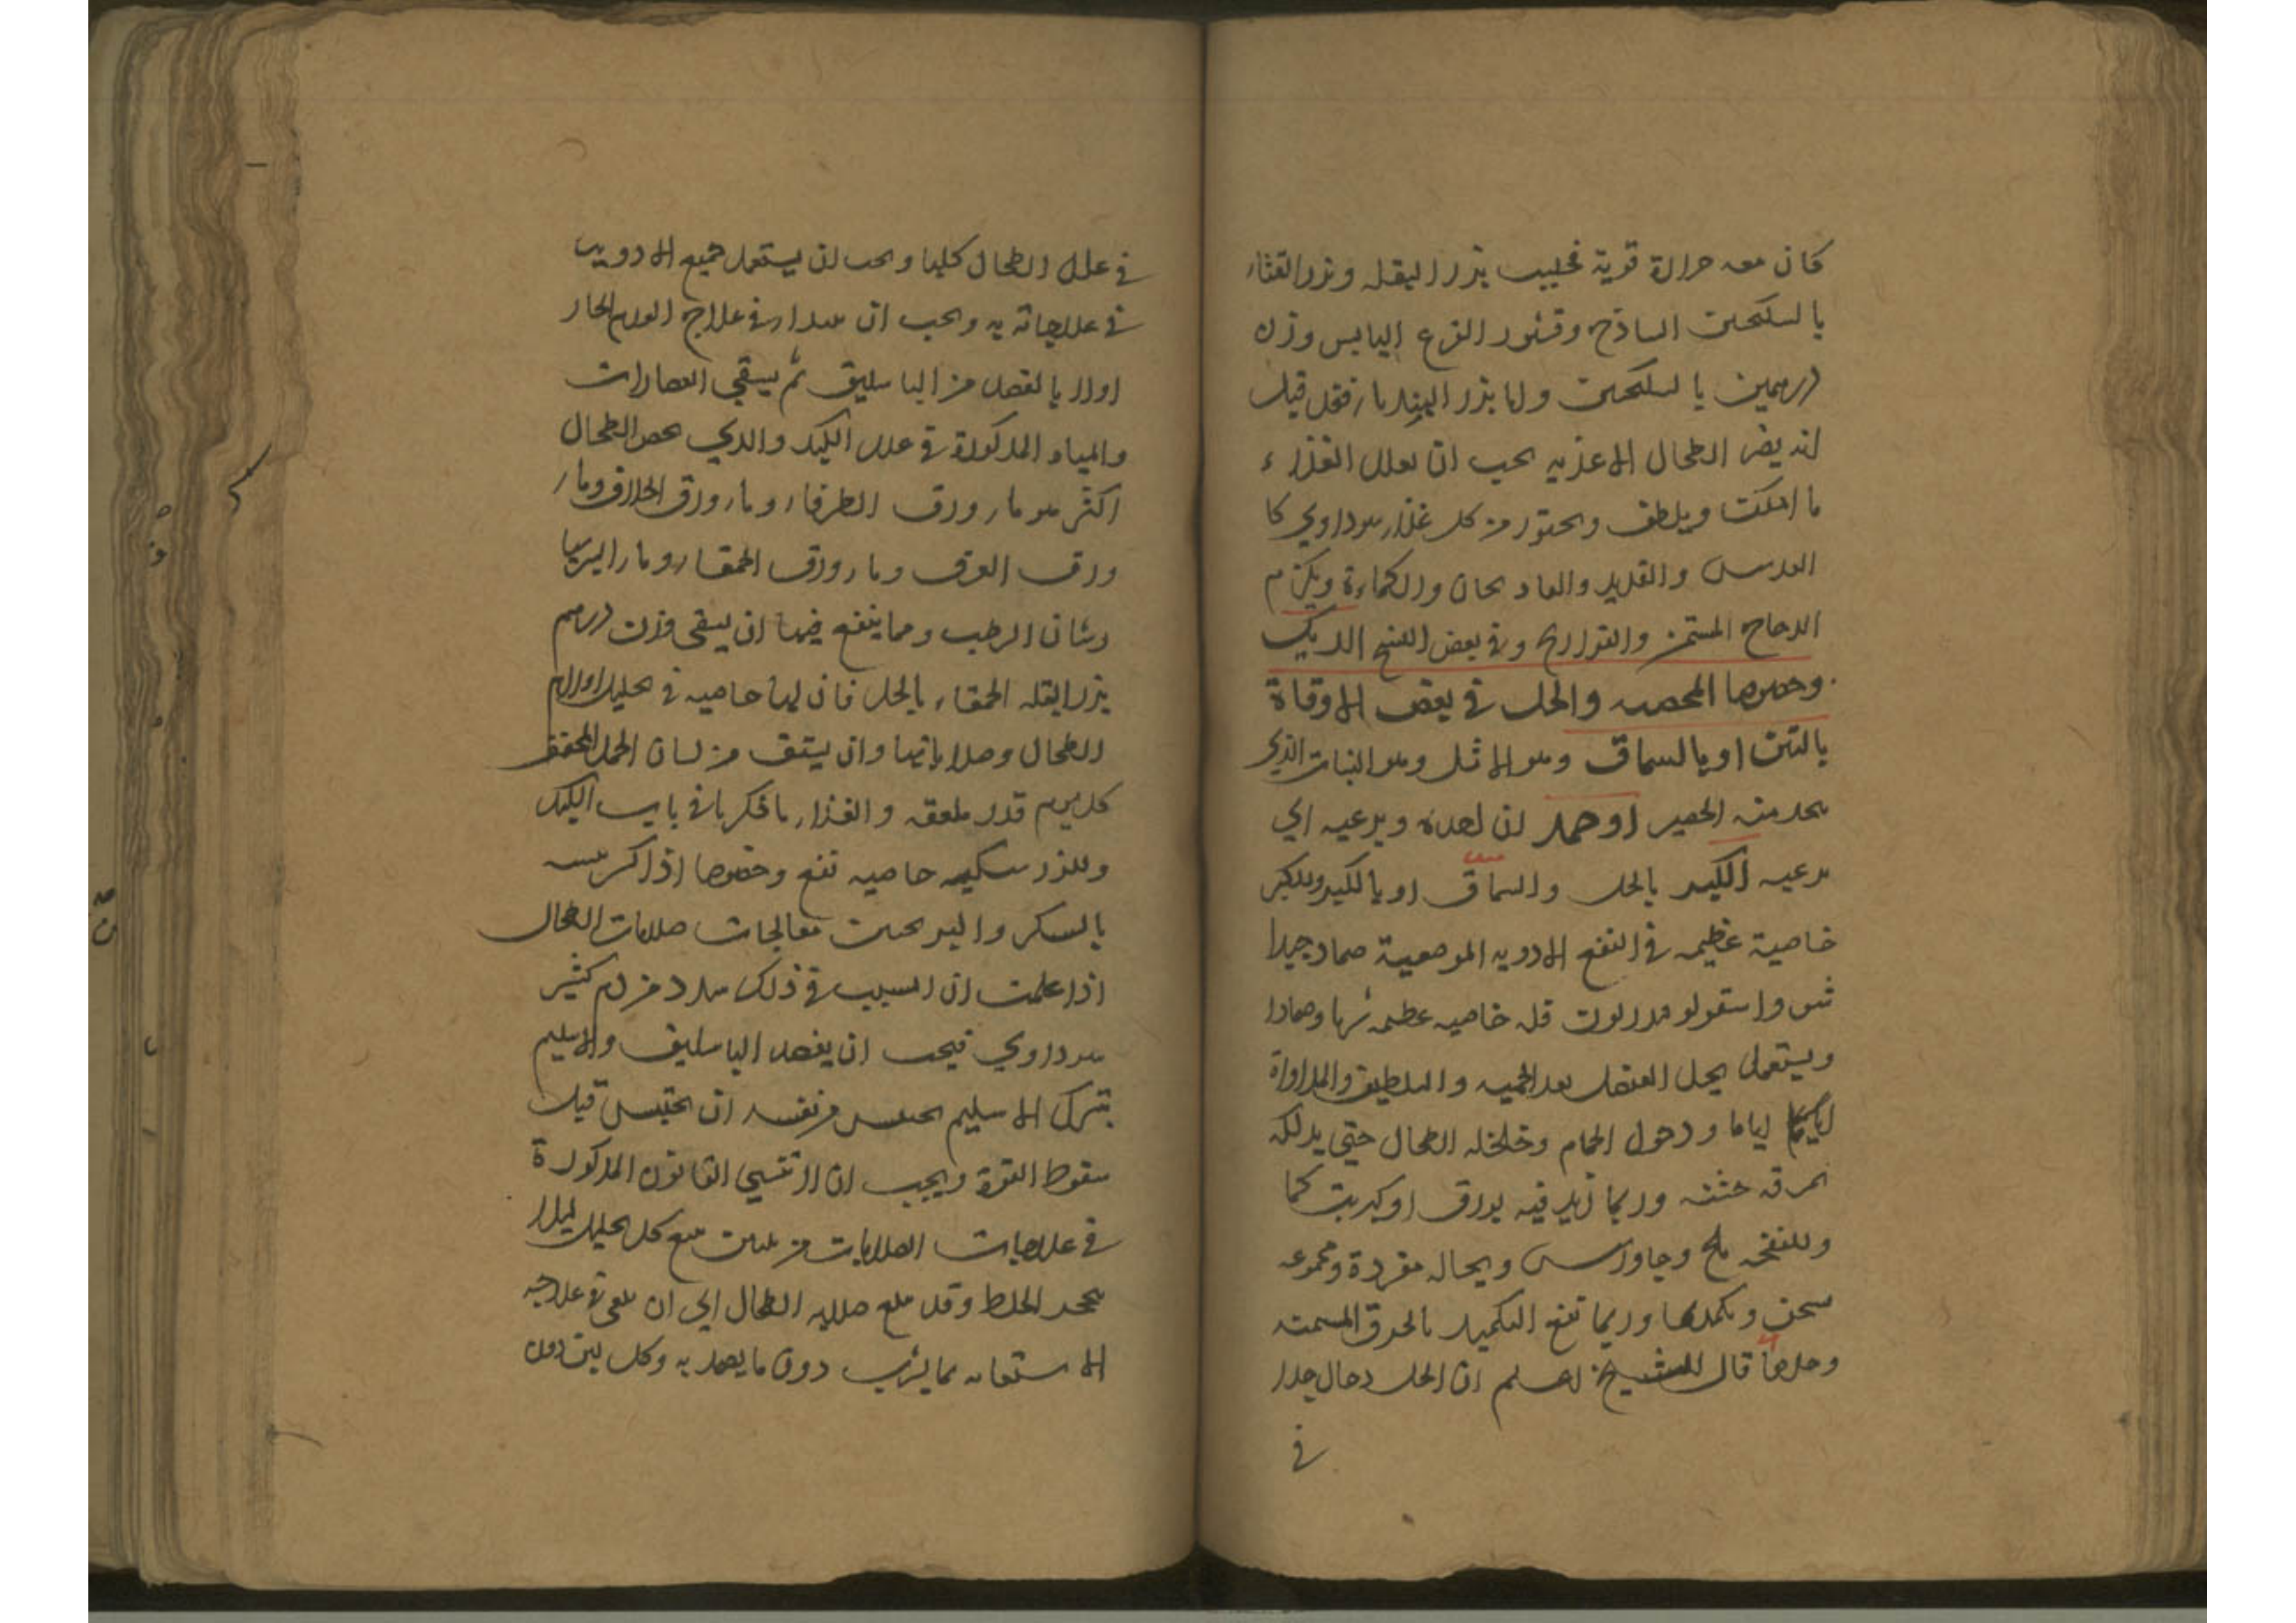 كان معه حرارة قوية فحليب بزر البقله وبزر القثاء
بالسكنجبين الساذج وقشور القرع اليابس وزن
درهمين بالسكنجبين واما بزر الهندبا فقد قيل
انه يضر الطحال الاغذيه يجب ان يقلل الغذاء
ما امكن ويلطف ويحترز من كل غذاء سوداوي كا
العدس والقديد والباد نجان والكماءة ويلزم
الدجاج المسمن والفراريج وفي بعض النسخ الديك
وخصوصا المخصيه والخل في بعض الاوقاة
بالتين او بالسماق وهو الاثل وهو النبات الذي
يتخذ منه الحصير او حمد ان لعده ويرعيه الي
يرعيه الكبد بالخل والسماق او بالكبر وللكبر
خاصية عظيمه في النفع الادويه الموضعية ضماد جيدا
واسقولو قندريون قله خاصيه عظيمه شربا وضمادا
ويستعمل يحل العنصل بعد الحميه والتلطيف والمداواة
اياما ودخول الحمام وخلخله الطحال حتي يدلكه
بخرقه خشنه وربما زيد فيه بورق او كبريت كما
وللنفخه ملح وجاورس ونخاله مفردة ومجموعه
سخن وبكمدها وربما تفع التكميد بالخرق المسخنه
وحدها قال الشيخ اعلم ان الخل دخال جدا
في
في علل الطحال كلها ويجب ان يستعمل جميع الادويه
في علاجاته به ويجب ان يبدا في علاج الورم الحار
اولا بالفصد من الباسليق ثم يسقي العصارات
والمياه المذكورة في علل الكبد والذي يخص الطحال
اكثر هو ماء ورق الطرفاء وماء ورق الخلاف وماء
ورق العرف وماء ورق الحمقاء وماء البرسيا
وشان الرطب ومما ينفع فيها ان يسقى وزن درهم
بزر البقله الحمقاء بالخل فان لها خاصيه في تحليل اورام
الطحال وصلاباتها وان يستف من لسان الحمل المجفف
كل يوم قدر ملعقه والغذاء ما ذكرنا في باب الكبد
خاصيه نفع وخصوصا اذا
بالسكر والترنجبين معالجات صلابات الطحال
اذا علمت ان السبب في ذلك سدد من دم كثير
سوداوي فيجب ان يفصد الباسليق والاسليم
بترك الاسليم يحتبس من نفسه ان يحتبس قبل
سقوط القوة ويجب ان لا تنسي القانون المذكورة
في علاجات الصلابات من تليين مع كل تحليل ليلا
يتحجر الخلط وقد صلابه الطحال الي ان في علاجه
الاستعانه بما يشرب دون ما يضمد به وكل لين دون